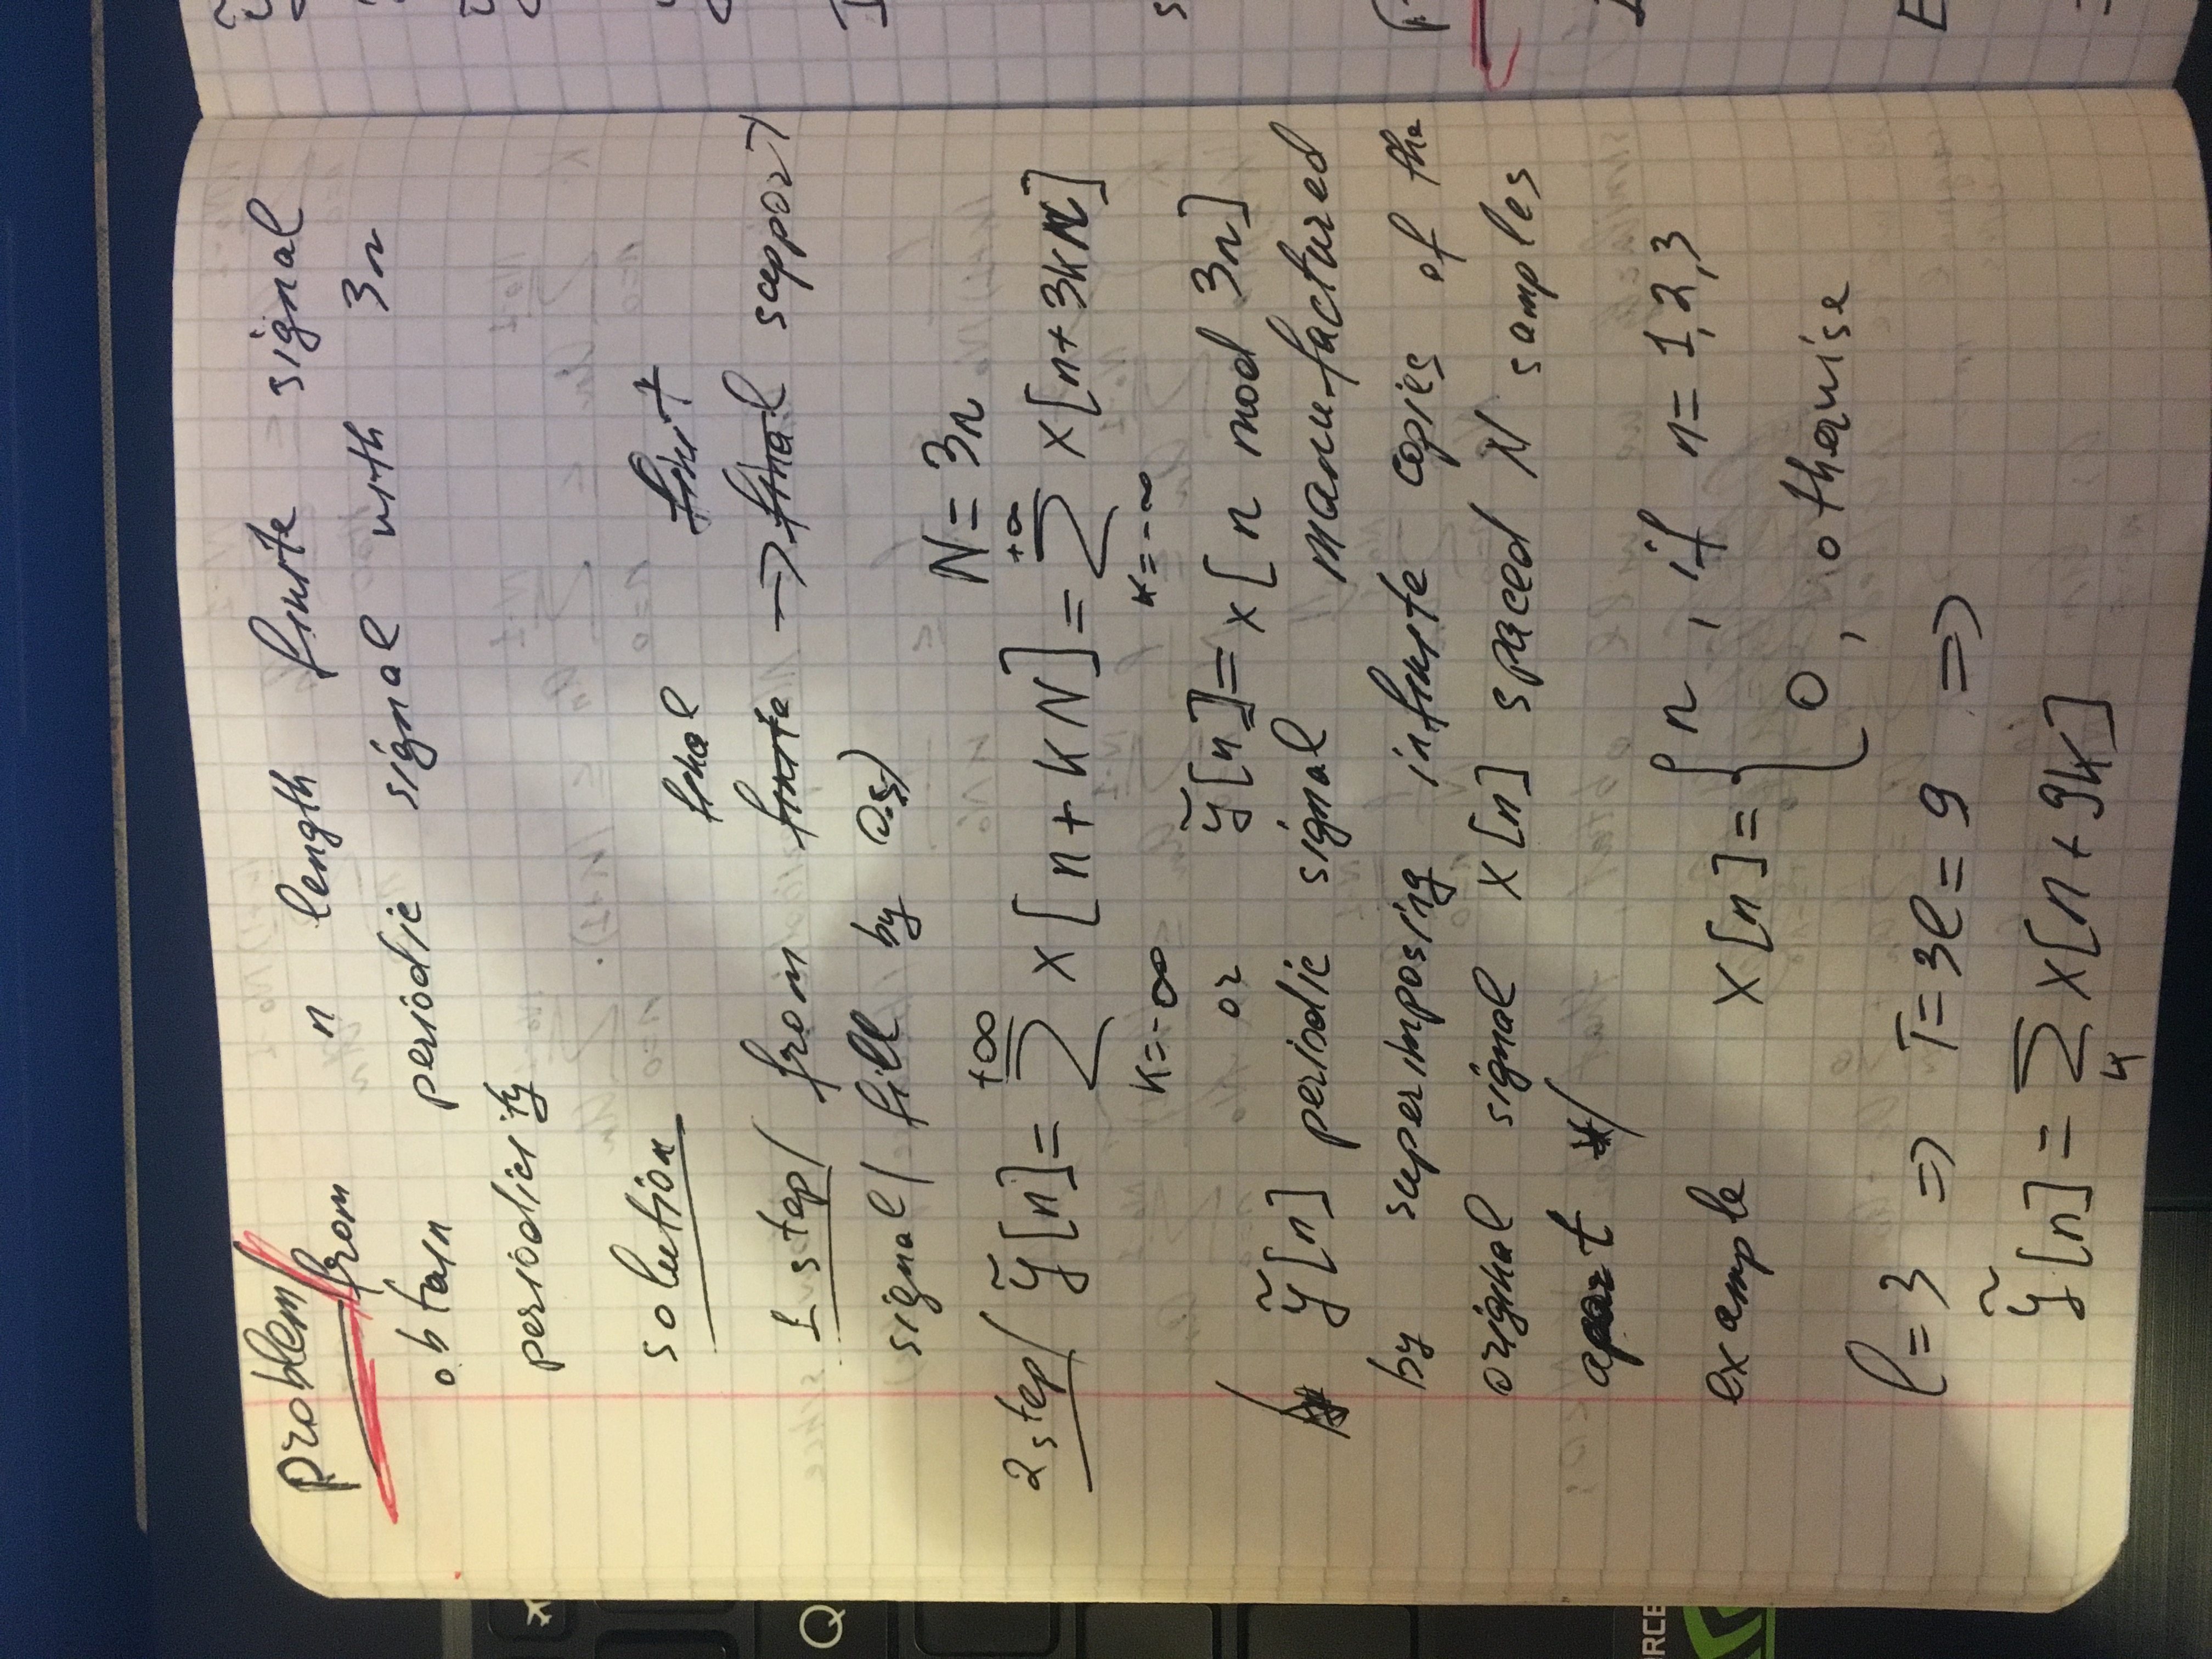 problem/
from n length finite signal
obtain periodic signal with 3n
periodicity
solution
final finit
1 step/ from finite -> final support
signal/ fill by 0.s)
N = 3n
2 step/ ỹ[n] = ∑_{k=-∞}^{+∞} x[n+kN] = ∑_{k=-∞}^{+∞} x[n+3kn]
or ỹ[n] = x[n mod 3n]
/* ỹ[n] periodic signal manufactured
by superimposing infinite copies of the
original signal x[n] spaced N samples
apart */
example x[n] = { n, if n = 1,2,3
0, otherwise
l = 3 => T = 3l = 9 =>
ỹ[n] = ∑_k x[n+9k]
Q
ORCE